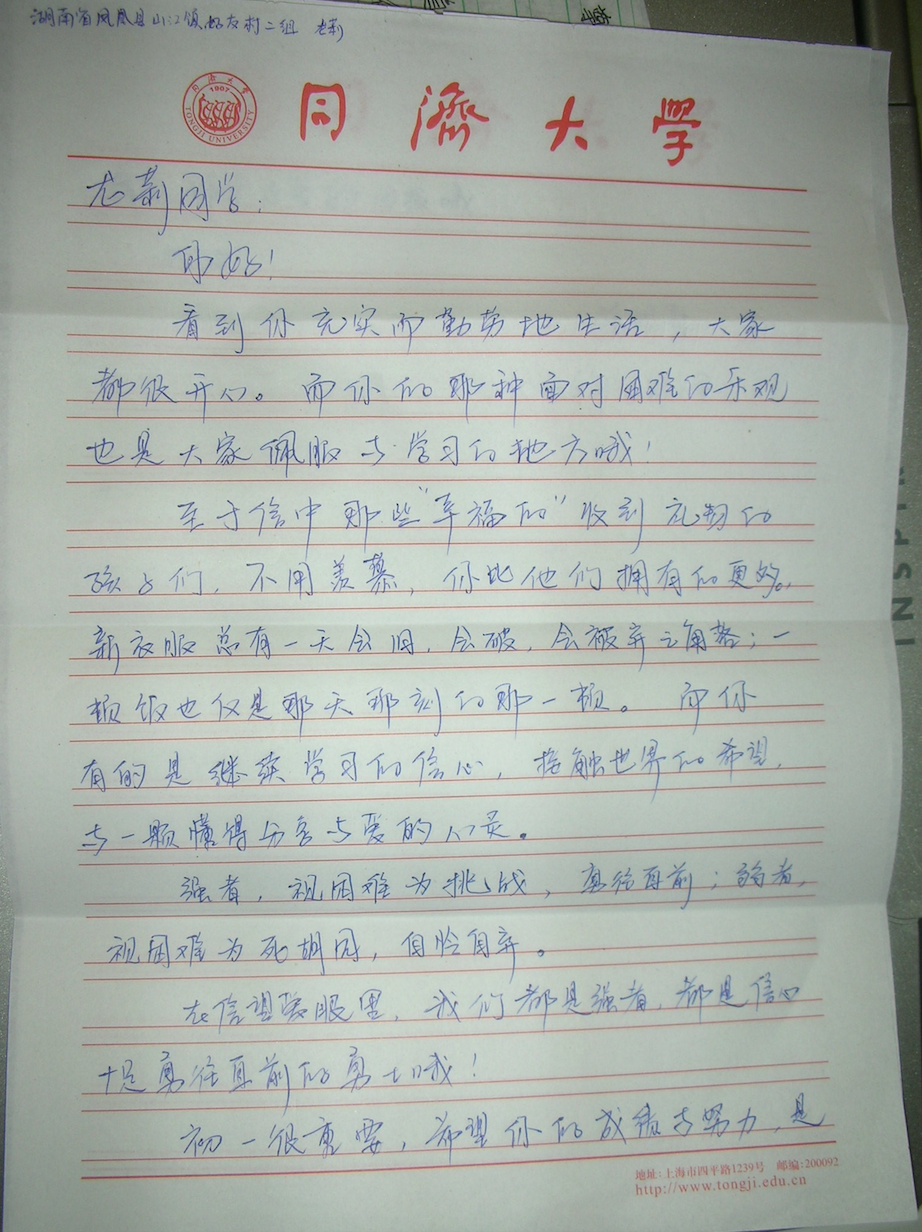 湖南省凤凰县山江镇好友村二组 龙莉
同济大学
1907
TONGJI UNIVERSITY
龙莉同学：
你好！
看到你充实而勤劳地生活，大家
都很开心。而你的那种面对困难的乐观
也是大家佩服与学习的地方哦！
至于信中那些“幸福的”收到礼物的
孩子们，不用羡慕，你比他们拥有的更多。
新衣服总有一天会旧，会破，会被弃之角落；一
顿饭也仅是那天那刻的那一顿。而你
有的是继续学习的信心，接触世界的希望，
与一颗懂得分享与爱的心灵。
强者，视困难为挑战，勇往直前；弱者，
视困难为死胡同，自怜自弃。
在信望爱眼里，我们都是强者，都是信心
十足勇往直前的勇士哦！
初一很重要，希望你的成绩与努力，是
地址：上海市四平路1239号 邮编：200092
http://www.tongji.edu.cn